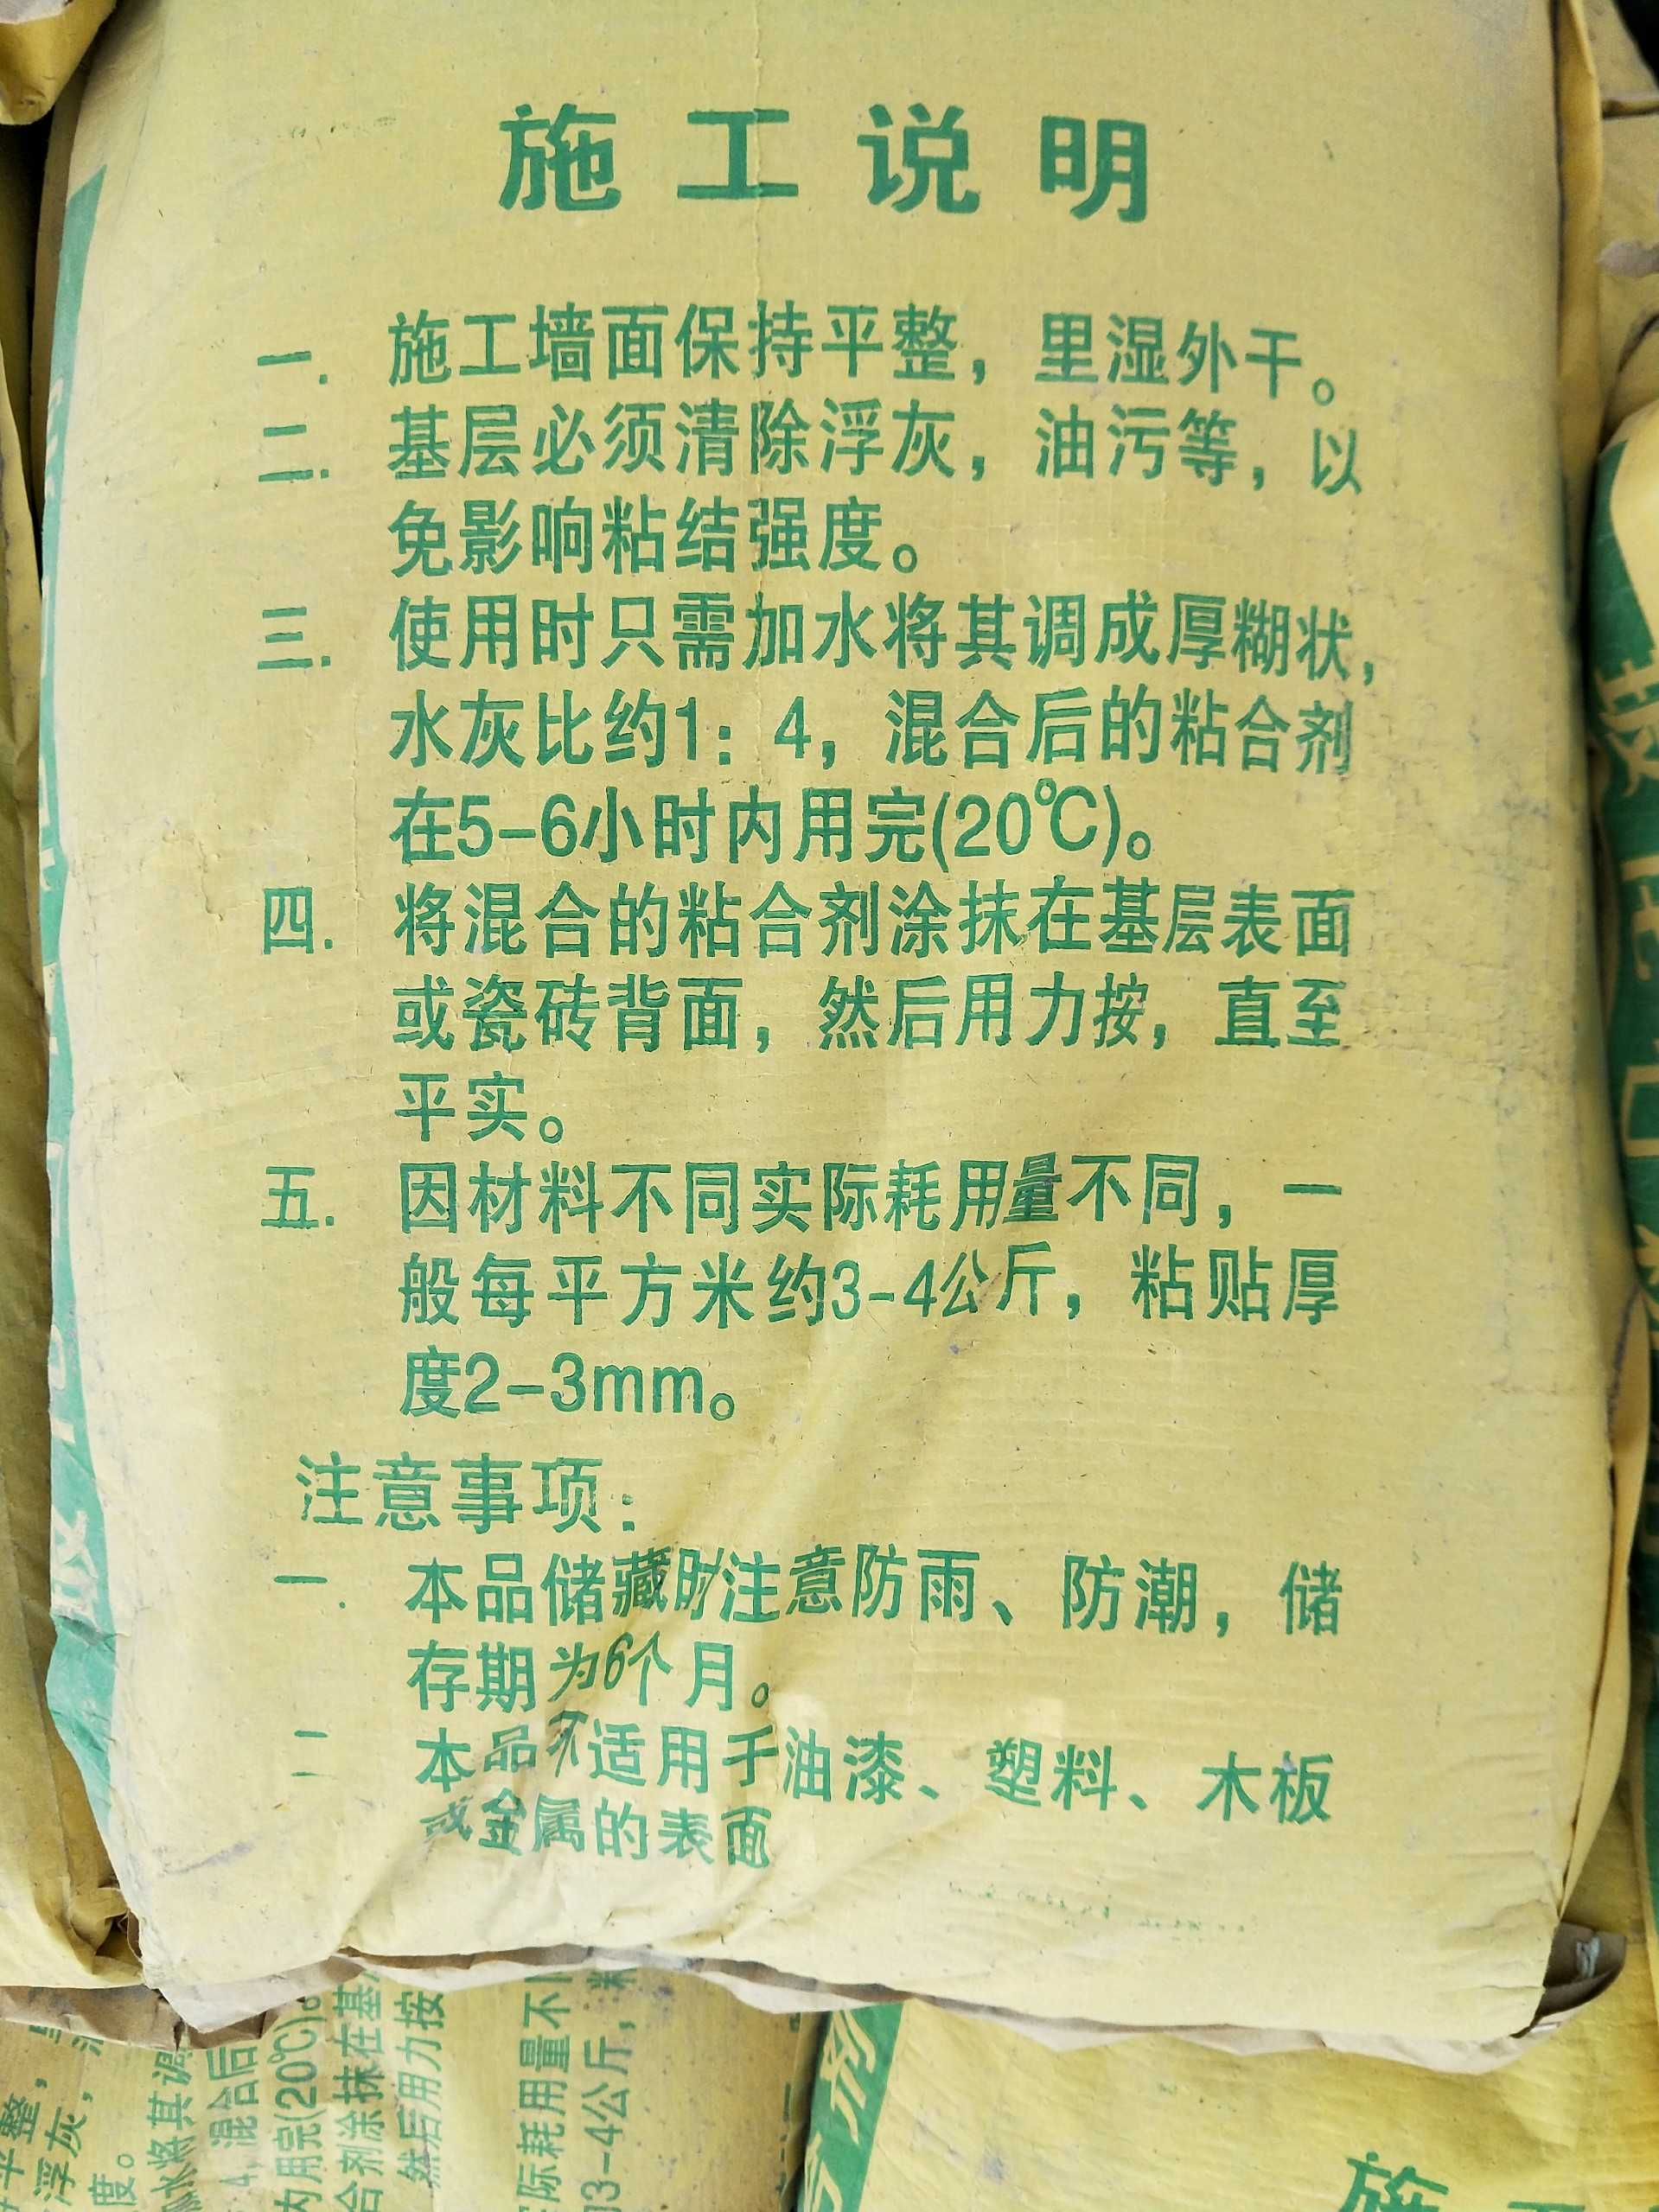 施工说明
一. 施工墙面保持平整，里湿外干。
二. 基层必须清除浮灰，油污等，以
免影响粘结强度。
三. 使用时只需加水将其调成厚糊状，
水灰比约1：4，混合后的粘合剂
在5-6小时内用完(20℃)。
四. 将混合的粘合剂涂抹在基层表面
或瓷砖背面，然后用力按，直至
平实。
五. 因材料不同实际耗用量不同，一
般每平方米约3-4公斤，粘贴厚
度2-3mm。
注意事项：
一. 本品储藏时注意防雨、防潮，储
存期为6个月。
二 本品不适用于油漆、塑料、木板
或金属的表面
平整，
浮灰，
度。
水将其调
4，混合后
内用完(20℃)。
合剂涂抹在基
然后用力按
际耗用量不
3-4公斤，
施